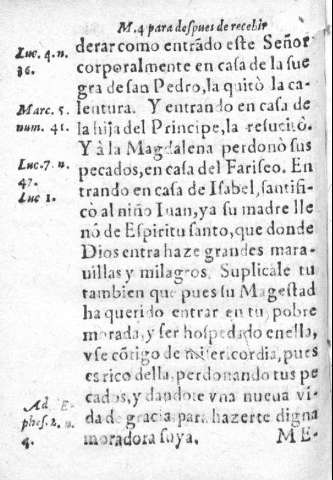 M. 4 para despues de recebir
Luc. 4. n.
36.
derar como entrado este Señor
corporalmente en casa de la sue
gra de san Pedro, la quitò la ca-
Marc. 5.
num. 41.
lentura. Y entrando en casa de
la hija del Principe, la resucitò.
Y à la Magdalena perdonò sus
Luc. 7. n.
47.
Luc 1.
pecados, en casa del Fariseo. En
trando en casa de Isabel, santifi-
cò al niño Iuan, y a su madre lle
nò de Espiritu santo, que donde
Dios entra haze grandes mara-
uillas y milagros. Suplicale tu
tambien que pues su Magestad
ha querido entrar en tu pobre
morada, y ser hospedado en ella,
vse cõtigo de misericordia, pues
es rico della, perdonando tus pe
Ad E-
phes. 2. n.
4.
cados, y dandote vna nueua vi-
da de gracia, para hazerte digna
moradora suya. ME-